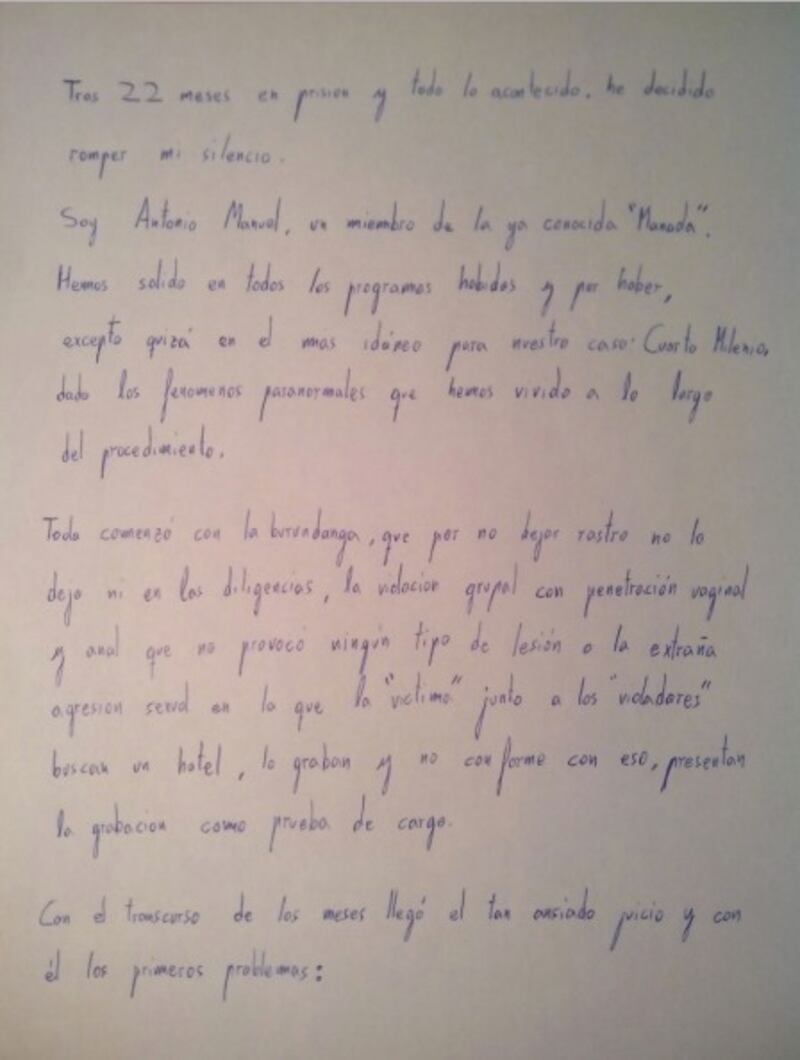 Tras 22 meses en prision y todo lo acontecido, he decidido
romper mi silencio.
Soy Antonio Manuel, un miembro de la ya conocida "Manada".
Hemos salido en todos los programas habidos y por haber,
excepto quizá en el mas idóneo para nuestro caso: Cuarto Milenio,
dado los fenomenos paranormales que hemos vivido a lo largo
del procedimiento.
Todo comenzó con la burundanga, que por no dejar rastro no lo
dejo ni en las diligencias, la violacion grupal con penetración vaginal
y anal que no provocó ningún tipo de lesión o la extraña
agresion sexual en la que la "victima" junto a los "violadores"
buscan un hotel, lo graban y no conforme con eso, presentan
la grabacion como prueba de cargo.
Con el transcurso de los meses llegó el tan ansiado juicio y con
él los primeros problemas: